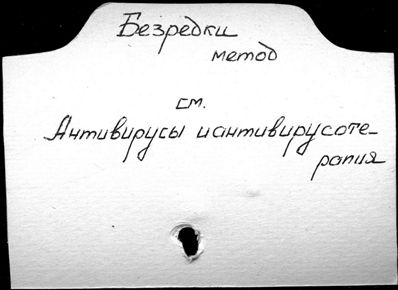 Безредки
метод
см.
Антивирусы и антивирусоте-
рапия